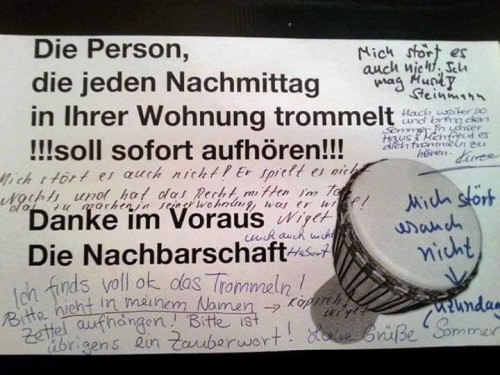 Die Person,
die jeden Nachmittag
in Ihrer Wohnung trommelt
!!!soll sofort aufhören!!!
Danke im Voraus
Die Nachbarschaft
Mich stört es
auch nicht. Ich
mag Musik!
Steinmann
Mach weiter so
und bring den
Sommer in unser
Haus! Mich freut es
dich trommeln zu
hören.
Mich stört es auch nicht! Er spielt es nicht
Nachts und hat das Recht, mitten im Tag
das zu machen in seiner Wohnung, was er will!
Niget
mich auch nicht
Hubert
Mich stört
es auch
nicht
Ich finds voll ok das Trommeln!
Bitte nicht in meinem Namen → Kapischi
Niget
Zettel aufhängen! Bitte ist
übrigens ein Zauberwort! Liebe Grüße Sommer